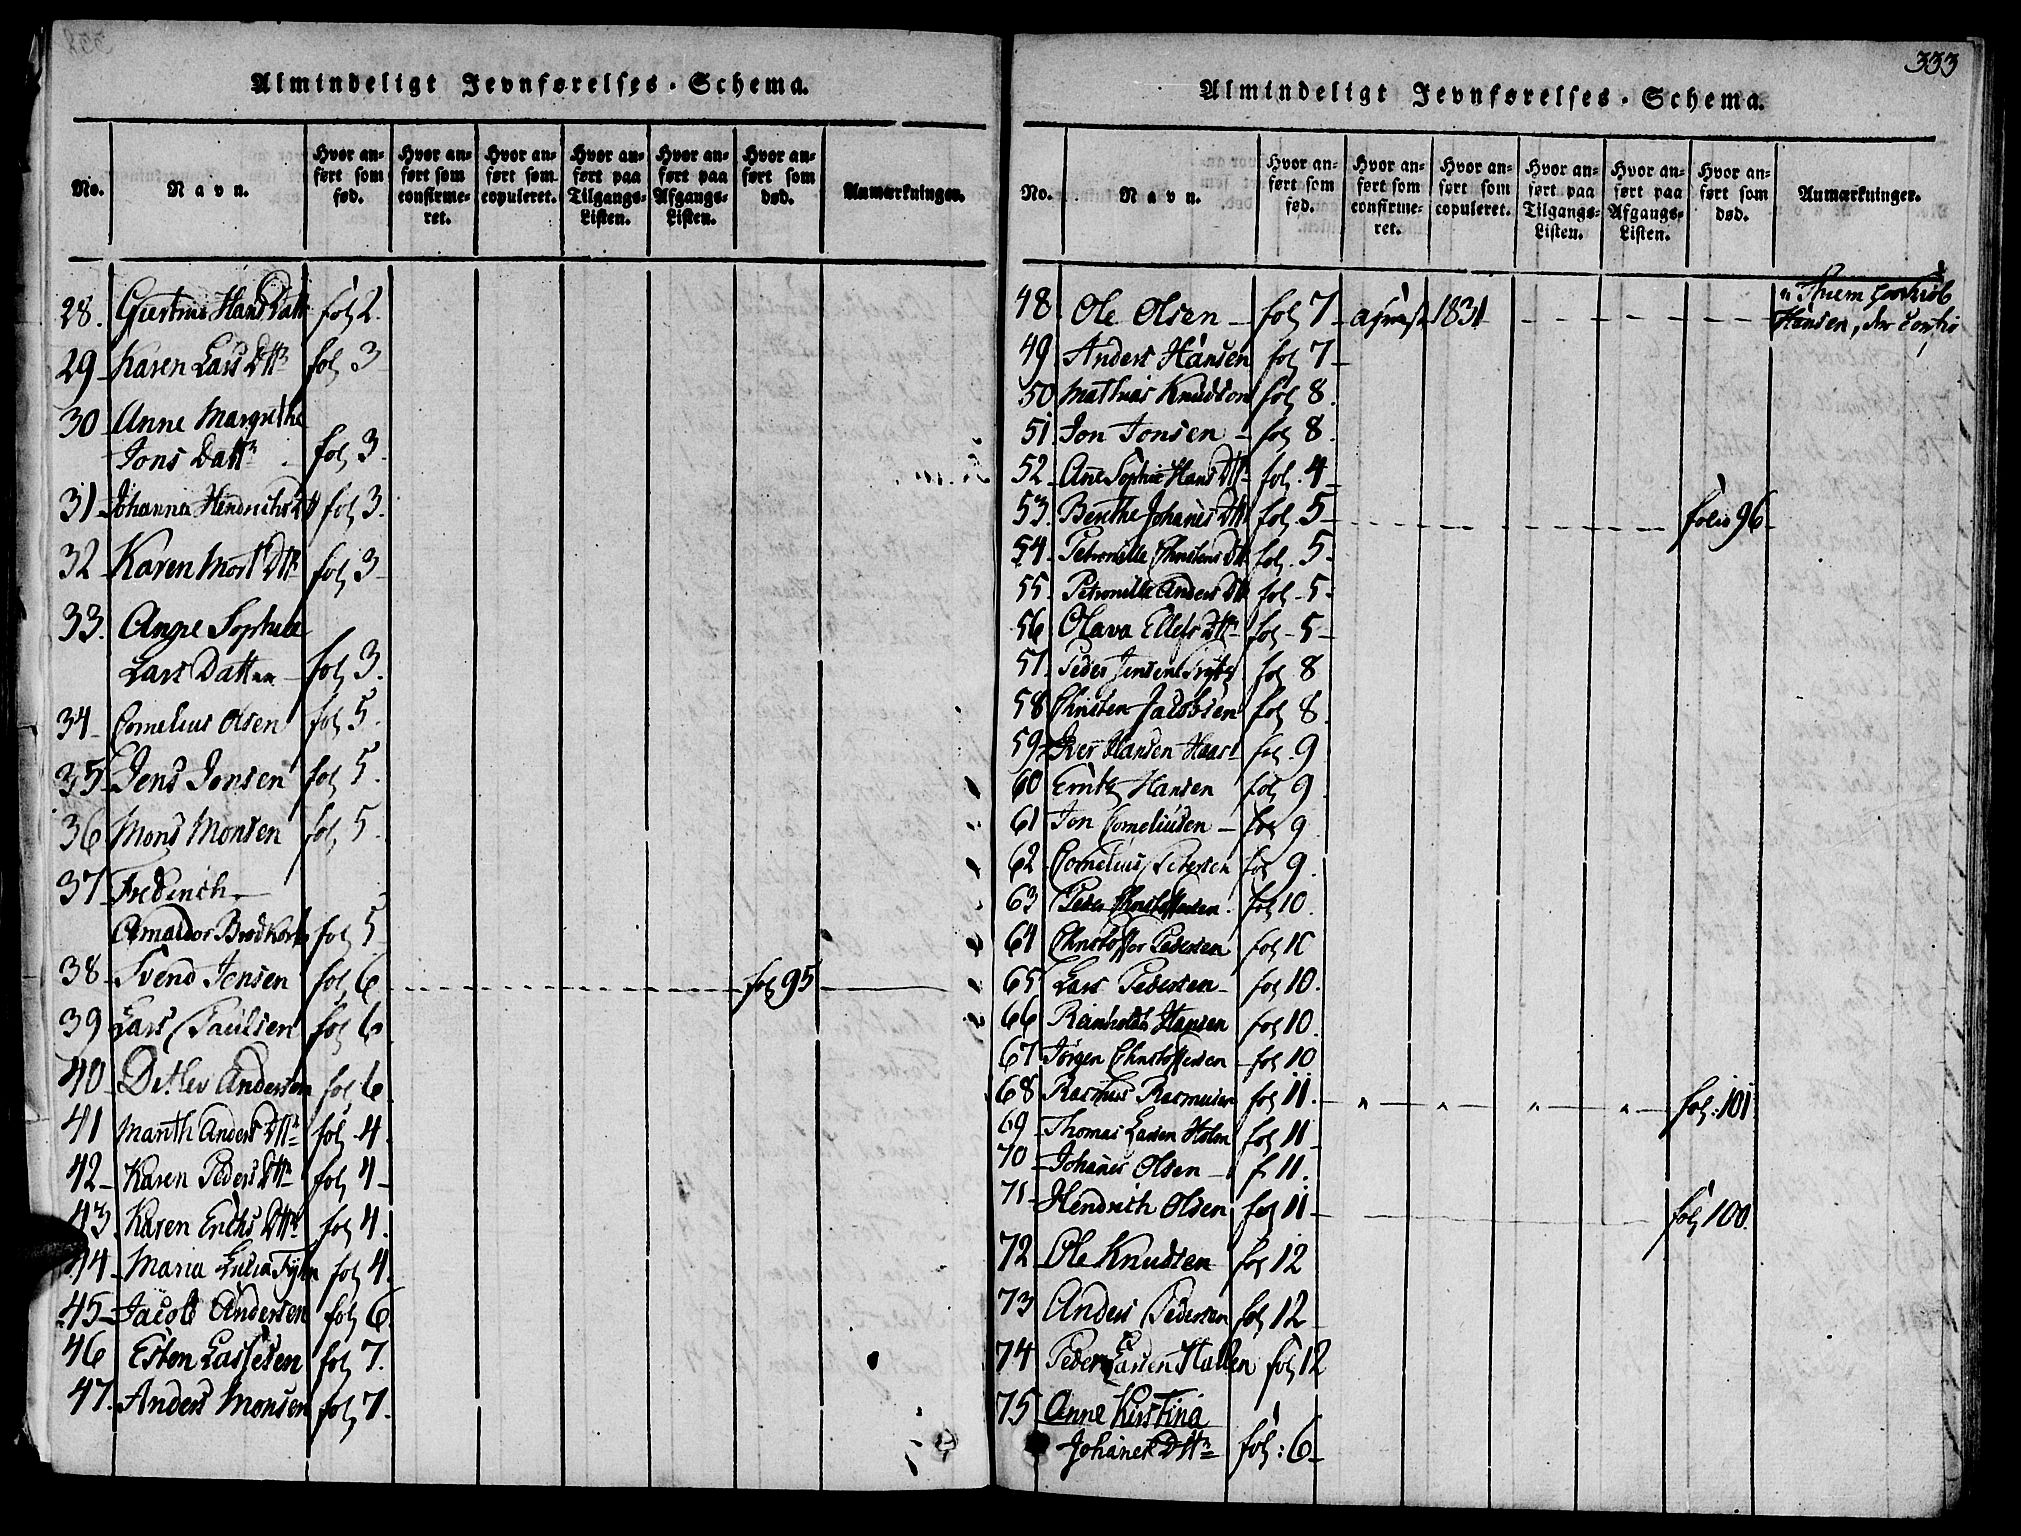 Almindeligt Jevnførelses-Schema.
No.
Navn.
Hvor anført som fød.
Hvor anført som confirmeret.
Hvor anført som copuleret.
Hvor anført paa Tilgangs-Listen.
Hvor anført paa Afgangs-Listen.
Hvor anført som død.
Anmærkninger.
28. Hans Datt fol 2.
29 Karen Lars Dttr fol 3
30 Anne Margrethe
Jons Dattr fol 3.
31 Johanna Hendrichs Dtt fol 3.
32 Karen Mort Dttr fol 3
33. Anne Sophia
Lars Datter fol 3.
34 Cornelius Olsen fol 5.
35 Jens Jonsen fol 5.
36 Mons Monsen fol 5.
37 Frederich
Amaldor Brodkorb fol 5
38 Svend Jensen fol 6 fol 95
39 Lars Paulsen fol 6
40 Detlev Andersen fol 6
41 Marith Anders Dttr fol 4.
42 Karen Peders Dttr fol 4
43 Karen Erichs Dttr fol 4.
44 Maria fol 4.
45 Jacob Andersen fol 6.
46 Esten Lassesen fol 7.
47. Anders Monsen fol 7.
333
Almindeligt Jevnførelses-Schema.
No.
Navn.
Hvor anført som fød.
Hvor anført som confirmeret.
Hvor anført som copuleret.
Hvor anført paa Tilgangs-Listen.
Hvor anført paa Afgangs-Listen.
Hvor anført som død.
Anmærkninger.
48 Ole Olsen fol 7 1831
Hansen,
49 Anders Hansen fol 7
50 Mathias Knudson fol 8.
51. Jon Jonsen fol 8.
52 Ane Sophie Hans Dttr fol. 4
53. Berthe Johanes Dttr fol. 5 folio 96
54 Petronille Christens Dtt fol. 5
55 Petronille Anders Dtt fol 5
56 Olava Ellefs Dttr fol 5
57. Peder Jensen fol 8
58 Christen Jacobsen fol 8.
59 Iver Hansen fol 9
60 Hansen fol 9
61 Jon Corneliusen fol 9
62 Cornelius Petersen fol 9.
63 Peder Christoffersen fol 10.
64 Christoffer Pedersen fol 10
65 Lars Pedersen fol 10.
66 Reinholdt Hansen fol 10.
67 Jørgen Christoffersen fol 10
68 Rasmus Rasmusen fol 11. fol: 101
69 Thomas Larsen Holm fol 11
70 Johanes Olsen f 11.
71 Hendrich Olsen fol 11 fol 100
72 Ole Knudsen fol 12
73 Anders Pedersen fol 12
74 Peder Larsen Hallen fol 12
75 Anne Kirstina
Johanes Dttr fol: 6